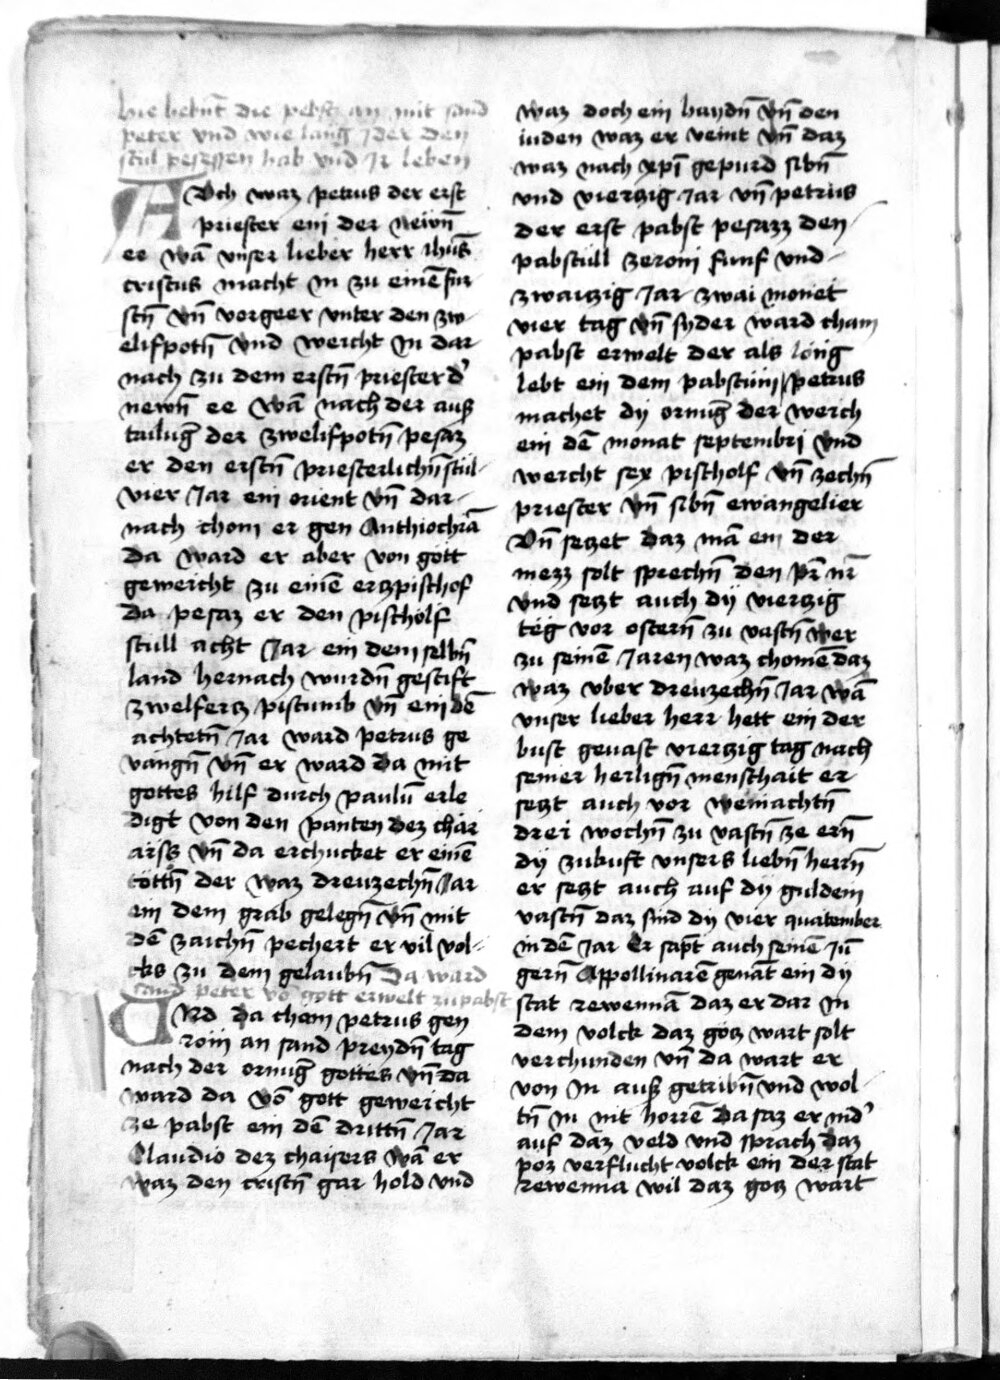 hie hebnt die pebst an mit sand
peter vnd wie lang jder den
stul pesessen hab vnd jr leben
AUch waz petrus der erst
priester ein der newn̄
ee wā vnser lieber herr ihūs
cristus macht in zu einē fur
stn̄ vn̄ vorgeer vnter den zw
elifpotn̄ vnd weicht in dar
nach zu dem erstn̄ priester d'
newn̄ ee wā nach der auſ
tailūg der zwelifpotn̄ pesaz
er den erstn̄ priesterlichn̄ stul
vier jar ein orient vn̄ dar
nach chom er gen Anthiochiā
da ward er aber von gott
geweicht zu einē erzpischof
da pesaz er den pischolf
stull acht jar ein dem selbn̄
land hernach wurdn̄ gestift
zwelferz pistumb vn̄ ein dē
achtetn̄ jar ward petrus ge
vangn̄ vn̄ er ward da mit
gottes hilf durch paulū erle
digt von den panten dez chai
aiss vn̄ da erchucket er einē
tottn̄ der waz dreuzechn̄ jar
ein dem grab gelegn̄ vn̄ mit
dē zaichn̄ pechert er vil vol
cks zu dem gelaubn̄ Da ward
sand peter vō gott erwelt zu pabst
UNd da chom petrus gen
rom an sand preydn̄ tag
nach der ornūg gottes vn̄ da
ward da vō gott geweicht
ze pabst ein dē drittn̄ jar
Claudio dez chaisers wā er
waz den cristn̄ gar hold vnd
waz doch ein haydn̄ vn̄ den
iuden waz er veint vn̄ daz
waz nach xp̄i gepurd sibn̄
vnd vierzig jar vn̄ petrus
der erst pabst pesazz den
pabstull ze rom funf vnd
zwaizig jar zwai monet
vier tag vn̄ syder ward chain
pabst erwelt der als long
lebt ein dem pabstum petrus
machet dy ornūg der weich
ein dē monat septembri vnd
weicht sex pischolf vn̄ zechn̄
priester vn̄ sibn̄ ewangelier
Vn̄ setzet daz mā ein der
mezz solt sprechn̄ den pr̄ nr̄
vnd setzt auch dy vierzig
teg vor ostern̄ zu vastn̄ wer
zu seinē jaren waz chomē daz
waz vber dreuzechn̄ jar wā
vnser lieber herr hett ein der
bust geuast vierzig tag nach
seiner herlign̄ menschait er
setzt auch vor weinachtn̄
drei wochn̄ zu vastn̄ ze ern̄
dy zukuft vnsers liebn̄ herrn̄
er setzt auch auf dy guldem
vastn̄ daz sind dy vier quatember
in dē jar Er sant auch seinē jū
gern̄ Appollinarē genāt ein dy
stat rewennā daz er dar in
dem volck daz gotz wart solt
verchunden vn̄ da wart er
von in auſ getribn̄ vnd wol
tn̄ in nit horrē Da saz er nid'
auf daz veld vnd sprach daz
poz verflucht volck ein der stat
rewenna wil daz gotz wart